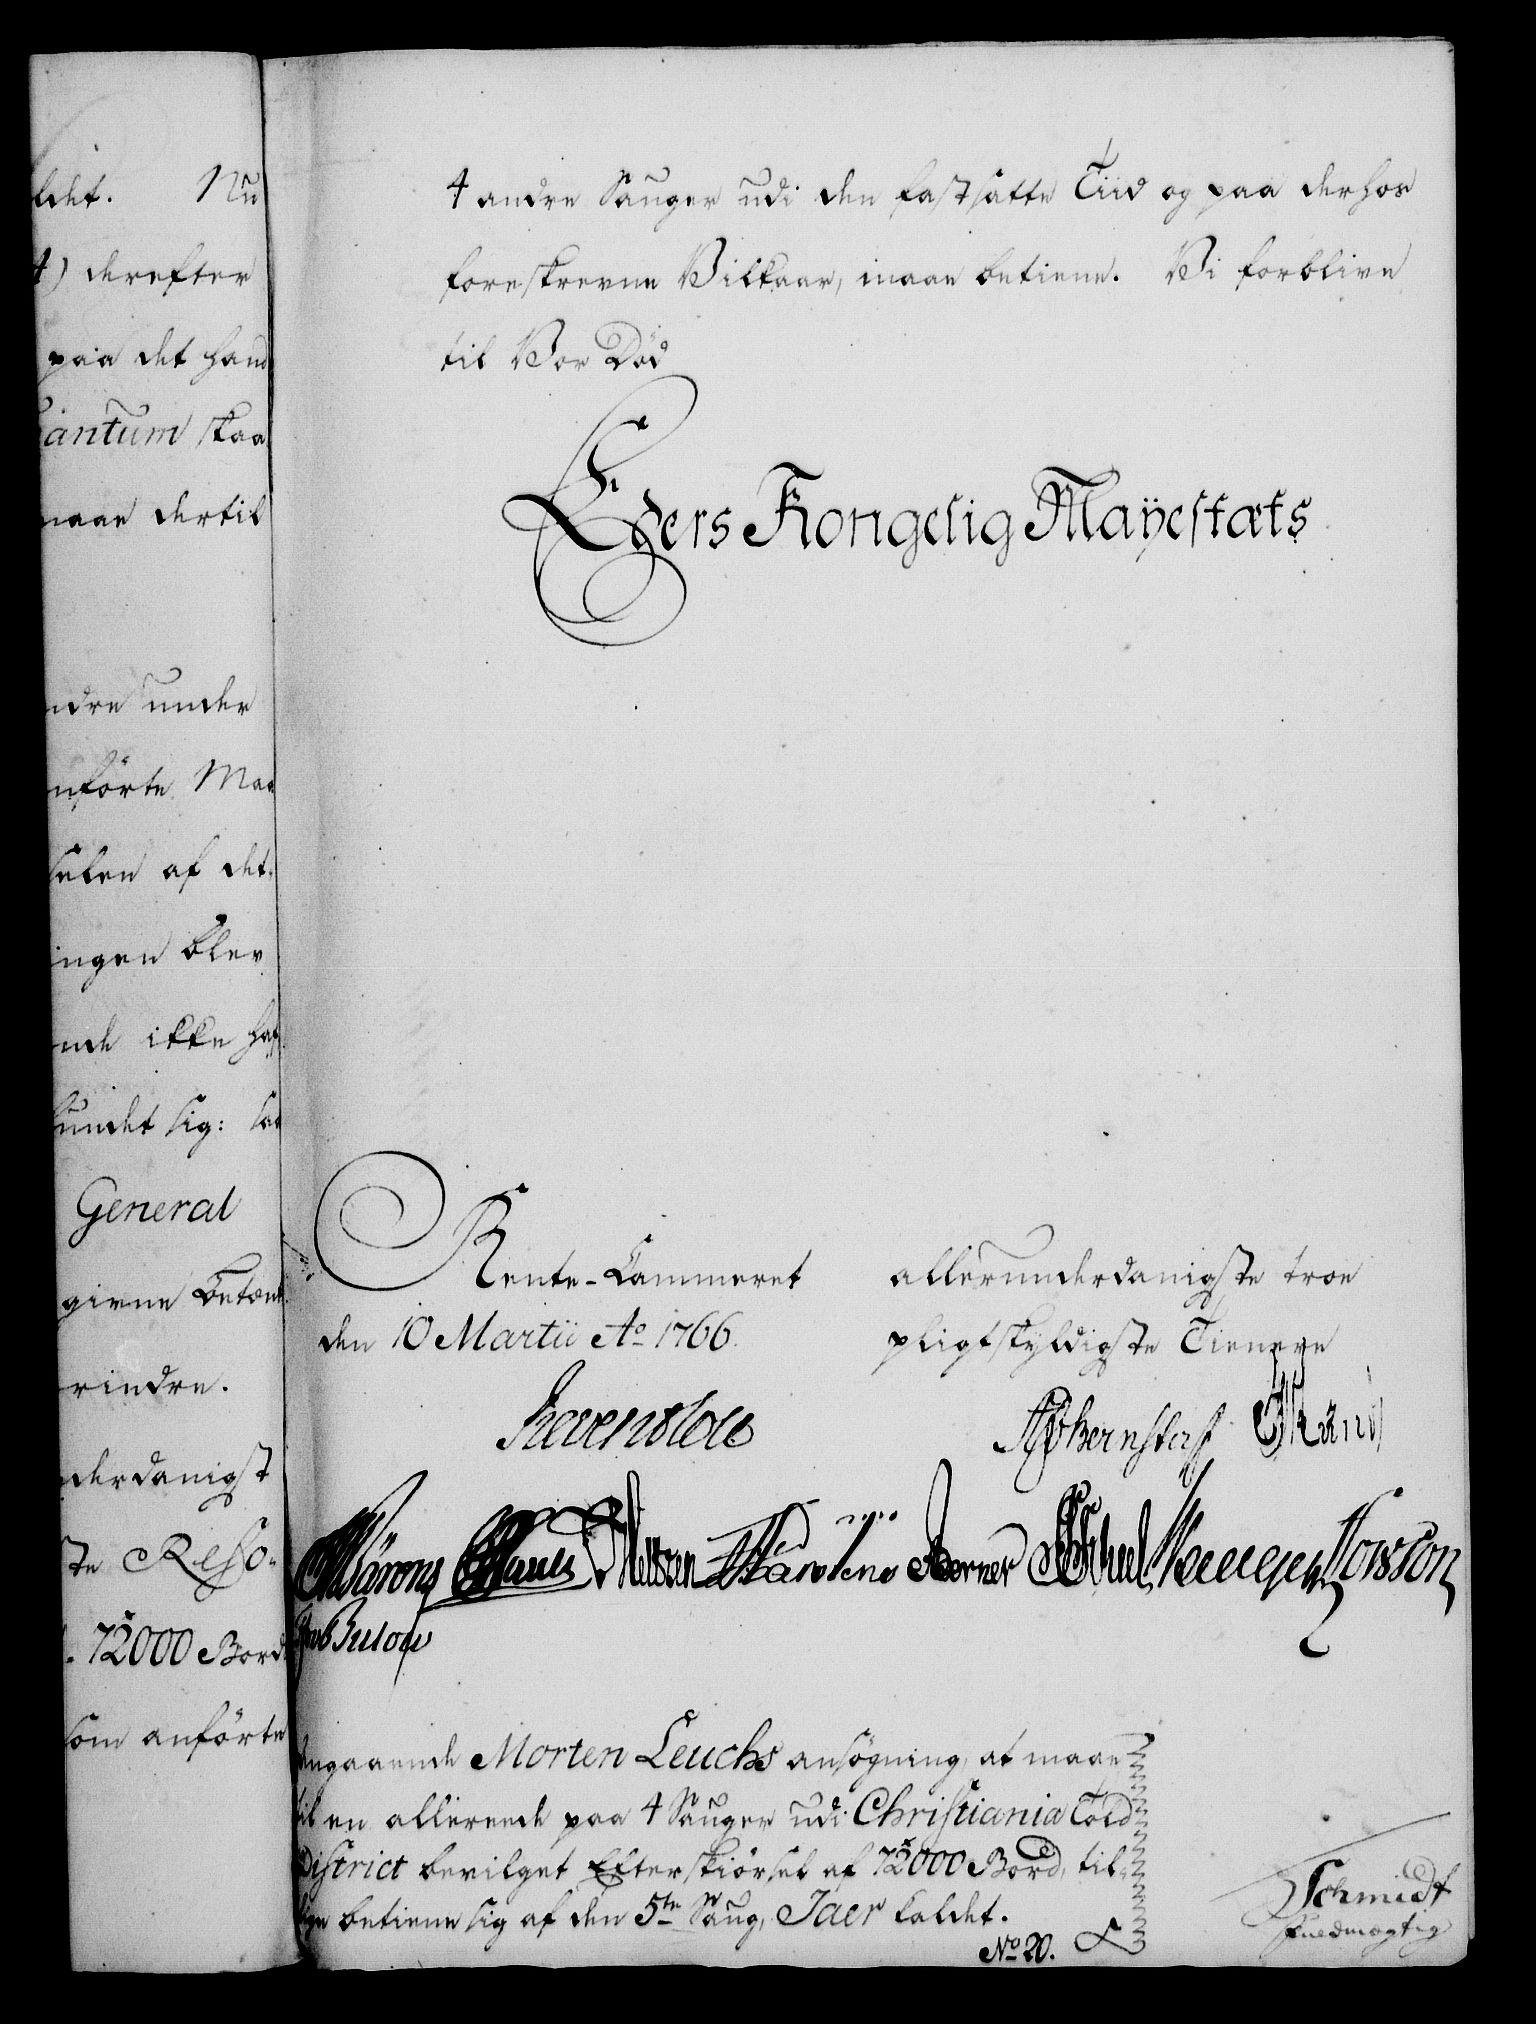 ldet. Nu
4) derefter
paa det hand
antum skaa
maae dertil
ndre under
nförte Maa
selen af det
ingen blev
nde ikke haf
fundet sig: saa
General
givne Betænk
rindre.
nderdanigst
ste Reso-
72000 Bord
som anförte
4 andre Sauger udi den fastsatte Tiid og paa derhos
foreskrevne Vilkaar, maae betiene. Vi forblive
til Vor Död
Eders Kongelig Mayestæts
Rente-Cammeret
den 10 Martii Ao 1766.
allerunderdanigste troe
pligtskyldigste Tienere
Reventlow
Bernstorf
Berner
Bulow
Angaaende Morten Leuchs ansögning, at maae
til en allereede paa 4 Sauger udi Christiania Told
District bevilget Efterskiörsel af 72000 Bord, til
lige betiene sig af den 5te Saug, Jaer kaldet.
No 20.
Schmidt
fuldmægtig